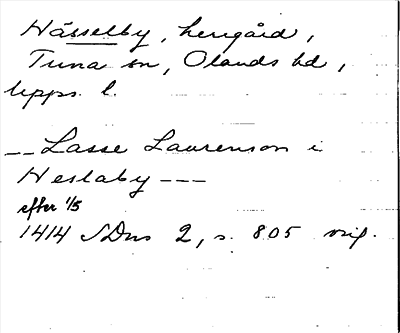 Hässelby, herrgård,
Tuna sn, Olands hd,
Upps. l.
__ Lasse Laurenson i
Heslaby ---
efter 1/5
1414 SDns 2, s. 805 orig.